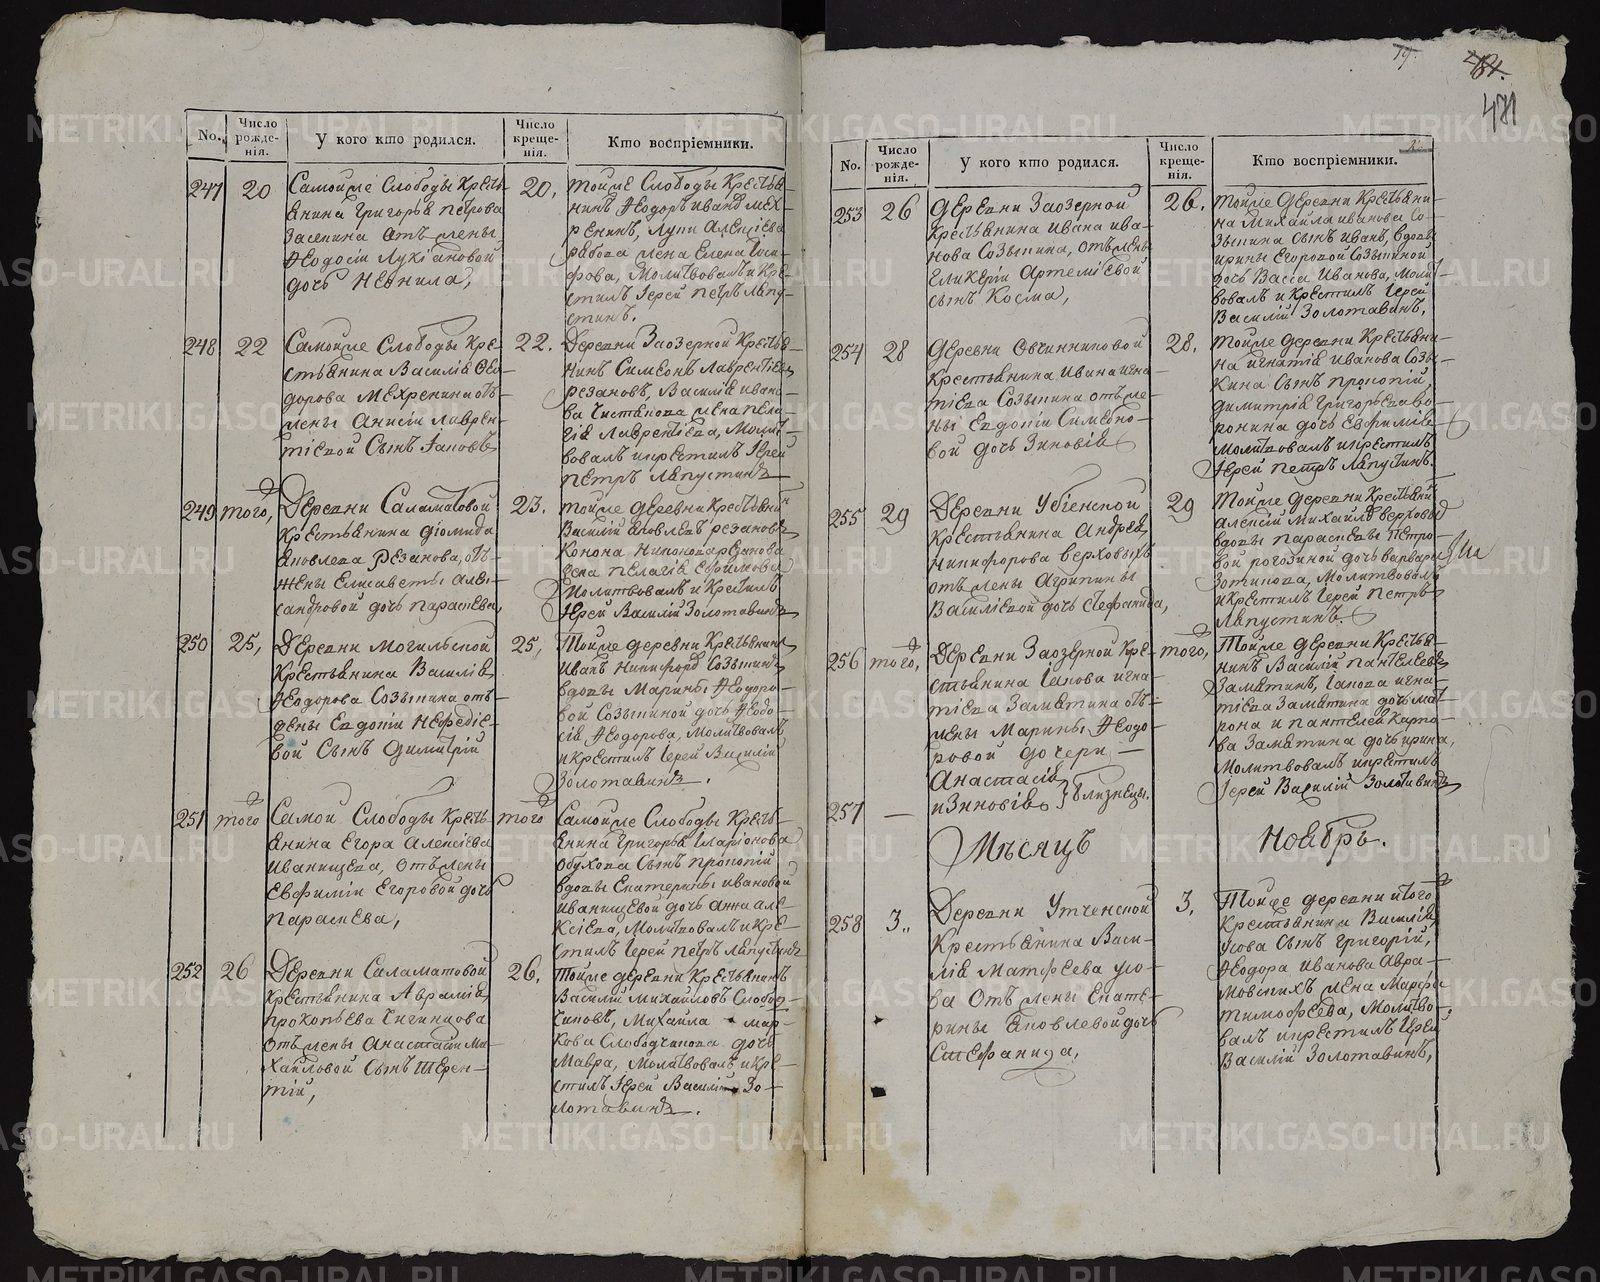 No.
Число рожде-нія.
У кого кто родился.
Число креще-нія.
Кто воспріемники.
247
20
Самойже Слободы Кресть-
янина Григорья Петрова
Засепина отъ жены
Ѳеодосіи Лукіановой
дочь Неонила,
20.
тойже Слободы Крестья-
нинъ Ѳеодоръ Иванъ Мех-
ренинъ,
жена Елена
Молитвовалъ и Кре-
стилъ Іерей Петръ Лапу-
стинъ.
248
22
Самойже Слободы Кре-
стьянина Василія Ѳео-
дорова Мехренина отъ
жены Анисіи Лаврен-
тіевой Сынъ Іаковъ
22.
Деревни Заозерной Крестья-
нинъ Симеонъ Лаврентіевъ
Резановъ, Василія Ивано-
ва жена Пела-
гія Лаврентіева, Молит-
вовалъ и крестилъ Іерей
Петръ Лапустинъ
249
того,
Деревни Саламатовой
Крестьянина Діомида
Яковлева Резанова, отъ
жены Елисаветы Алек-
сандровой дочь Параскева,
23.
тойже деревни Крестьянин
Василій Яковлевъ Резановъ
Конона Никонова Резанова
жена Пелагія Ефимова
Молитвовалъ и Крестилъ
Іерей Василій Золотавинъ
250
25,
Деревни Могильской
Крестьянина Василія
Ѳеодорова Созыкина отъ
жены Евдокіи Нефедіе-
вой Сынъ Димитрій
25,
Тойже деревни Крестьянинъ
Иванъ Никифоръ Созыкинъ
вдовы Марины Ѳеодоро-
вой Созыкиной дочь Ѳеодо-
сія Ѳеодорова, Молитвовалъ
и Крестилъ Іерей Василій
Золотавинъ.
251
того
Самой Слободы Кресть-
янина Егора Алексіева
Иванищева, отъ жены
Евфиміи Егоровой дочь
Параскева,
того
Самойже Слободы Кресть-
янина Григорья Иларіонова
Обухова Сынъ Прокопій
вдовы Екатерины Ивановой
Иванищевой дочь Анна Але-
ксіева, Молитвовалъ и Кре-
стилъ Іерей Петръ Лапустинъ
252
26
Деревни Саламатовой
Крестьянина Аврамія
Прокопьева Чигинцова
отъ жены Анастасіи Ми-
хайловой Сынъ Терен-
тій,
26,
Тойже деревни Крестьянинъ
Василій Михайловъ Слобод-
чиковъ, Михайла Мар-
кова Слободчикова дочь
Мавра, Молитвовалъ и кре-
стилъ Іерей Василій Зо-
лотавинъ.
19.
481
No.
Число рожде-нія.
У кого кто родился.
Число креще-нія.
Кто воспріемники.
253
26
Деревни Заозерной
Крестьянина Ивана Ива-
нова Созыкина, отъ жены
Гликеріи Артеміевой
сынъ Косма,
26.
тойже деревни Крестьяни-
на Михайла Иванова Со-
зыкина Сынъ Иванъ, вдовы
Ирины Егоровой Созыкиной
дочь Васса Иванова, Молит-
вовалъ и Крестилъ Іерей
Василій Золотавинъ,
254
28
Деревни Овчинниковой
Крестьянина Ивана Игна-
тіева Созыкина отъ же-
ны Евдокіи Симеоно-
вой дочь Зиновія
28.
Тойже деревни Крестьяни-
на Игнатія Иванова Созы-
кина Сынъ Прокопій,
Димитрія Григорьева Во-
ронина дочь Евфимія
Молитвовалъ и крестилъ
Іерей Петръ Лапустинъ.
255
29
Деревни Убіенской
Крестьянина Андрея
Никифорова Верховыхъ
отъ жены Агрипины
Василіевой дочь Стефанида,
29
Тойже деревни Крестьянин
Алексій Михайлъ Верховый
вдовы Параскевы Петро-
вой Рогозиной дочь Варвара
Зотикова, Молитвовалъ
и Крестилъ Іерей Петръ
Лапустинъ.
256
того,
Деревни Заозерной Кре-
стьянина Іакова Игна-
тіева Замятина отъ
жены Марины Ѳеодо-
ровой дочери —
Анастасія
257
—
и Зиновія } близнецы.
того,
Тойже деревни Крестья-
нинъ Василій Пантелеевъ
Замятинъ, Іакова Игна-
тіева Замятина дочь Мат-
рона и Пантелей Карпо-
ва Замятина дочь Ирина,
Молитвовалъ и крестилъ
Іерей Василій Золотавинъ
Мѣсяцъ Ноябрь.
258
3.,
Деревни Утченской
Крестьянина Васи-
лія Матфеева Усо-
ва отъ жены Екате-
рины Яковлевой дочь
Стефанида,
3,
Тойже деревни и того
Крестьянина Василія
Усова Сынъ Григорій,
Ѳеодора Иванова Авра-
мовскихъ жена Марфа
Тимофеева, Молитво-
валъ и крестилъ Іерей
Василій Золотавинъ,